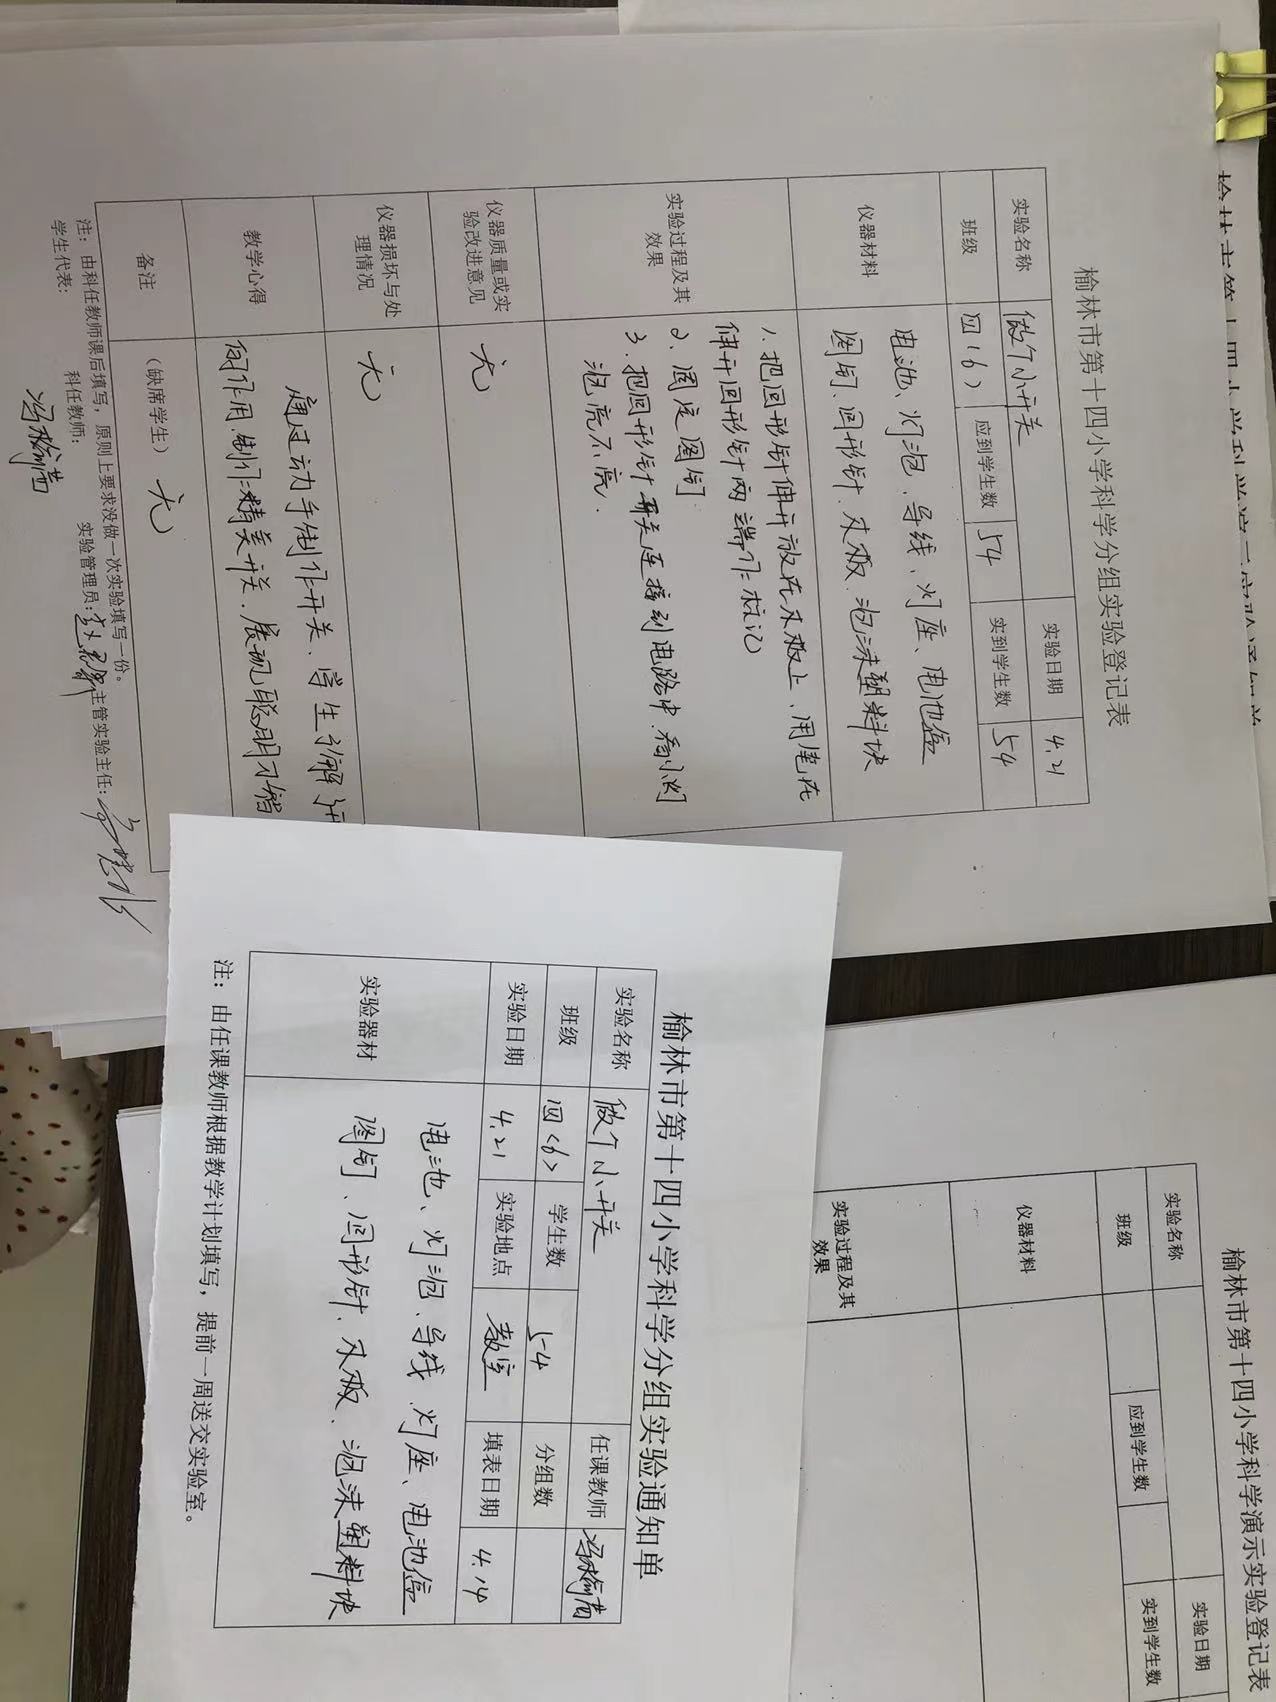 榆林市第十四小学科学分组实验登记表
实验名称 做个小开关 实验日期 4.21
班级 四(6) 应到学生数 54 实到学生数 54
仪器材料 电池、灯泡、导线、灯座、电池盒
图钉、回形针、木板、泡沫塑料块
实验过程及其效果 1. 把回形针伸开放在木板上、用笔在
伸开回形针两端作标记
2. 固定图钉
3. 把回形针开关连接到电路中.看小灯
泡亮不亮.
仪器质量或实验改进意见 无
仪器损坏与处理情况 无
教学心得 通过动手制作开关、学生了解开
关作用.制作精美开关.展现聪明才智
备注 (缺席学生) 无
注：由科任教师课后填写，原则上要求没做一次实验填写一份。
学生代表： 科任教师： 实验管理员： 主管实验主任：
榆林市第十四小学科学分组实验通知单
实验名称 做个小开关 任课教师
班级 四<6> 学生数 54 分组数
实验日期 4.21 实验地点 教室 填表日期 4.14
实验器材 电池、灯泡、导线、灯座、电池盒
图钉、回形针、木板、泡沫塑料块
注：由任课教师根据教学计划填写，提前一周送交实验室。
榆林市第十四小学科学演示实验登记表
实验名称 实验日期
班级 应到学生数 实到学生数
仪器材料
实验过程及其效果